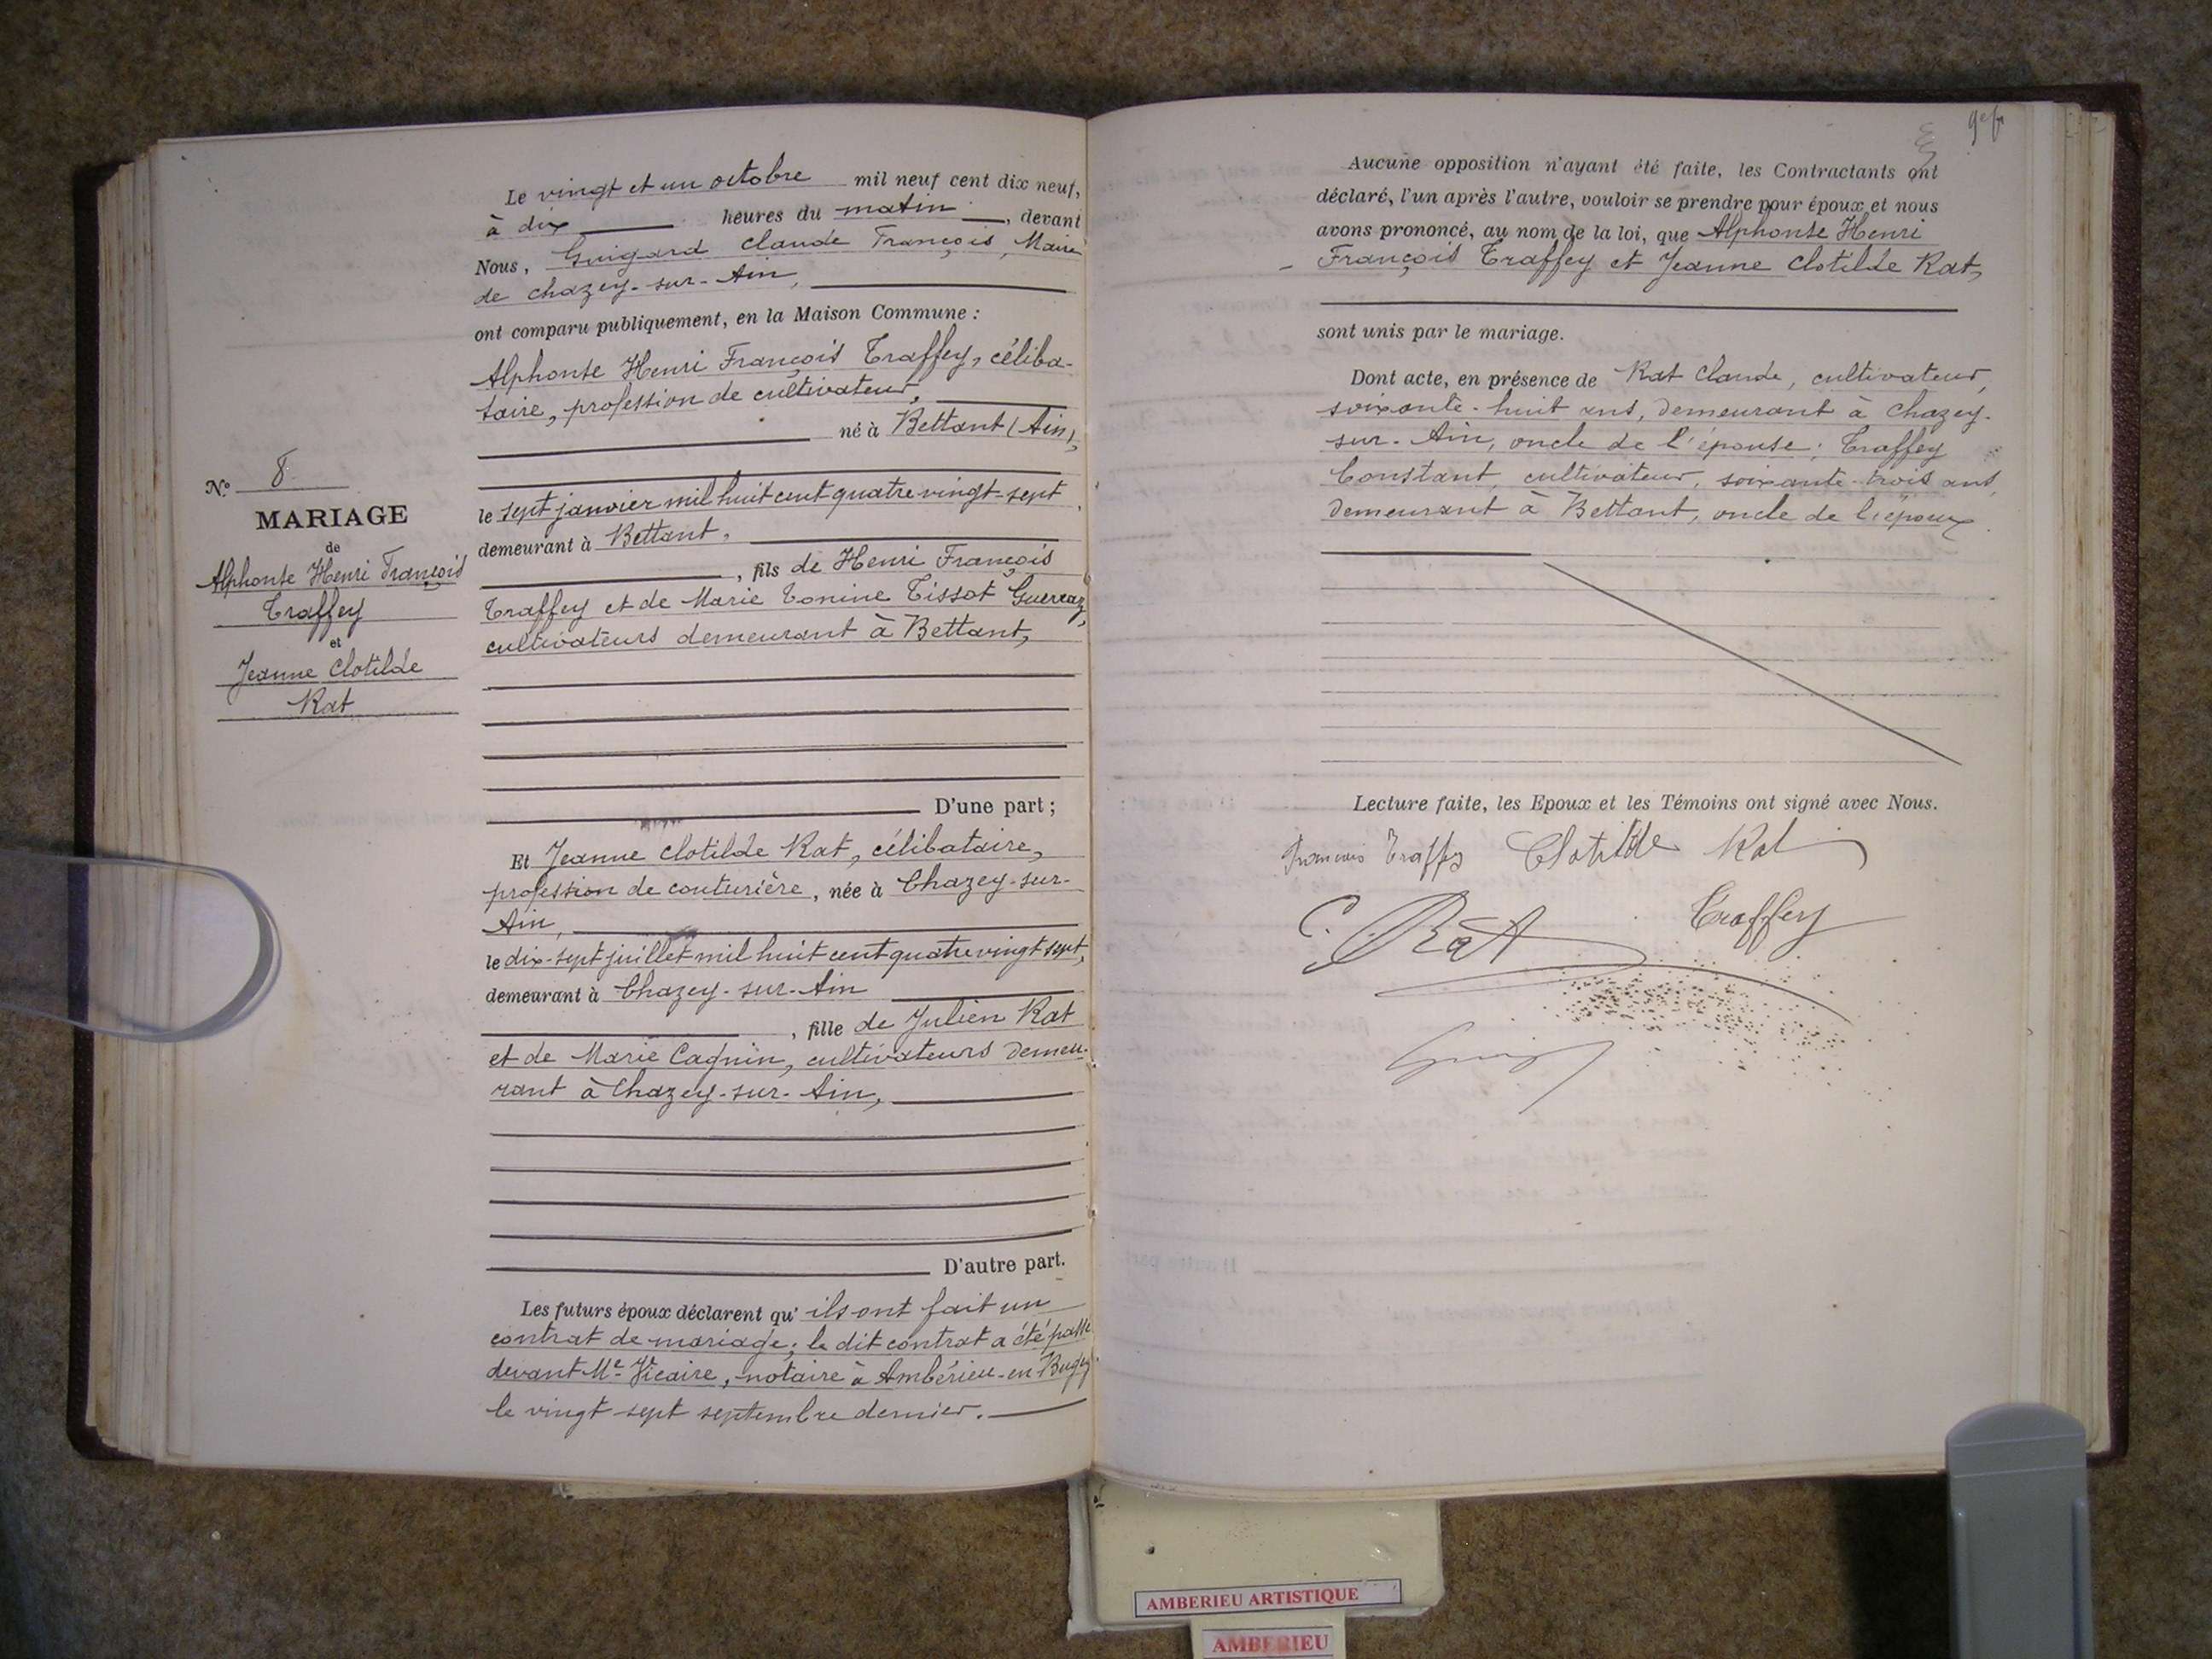 N° 8
MARIAGE
de
Alphonse Henri François
Traffey
et
Jeanne Clotilde
Rat
Le vingt et un octobre mil neuf cent dix neuf,
à dix heures du matin, devant
Nous, Guigard Claude François, Maire
de Chazey-sur-Ain,
ont comparu publiquement, en la Maison Commune :
Alphonse Henri François Traffey, céliba-
taire, profession de cultivateur,
né à Bettant (Ain),
le sept janvier mil huit cent quatre vingt-sept,
demeurant à Bettant,
, fils de Henri François
Traffey et de Marie Tonine Tissot Guerraz,
cultivateurs demeurant à Bettant,
D'une part ;
Et Jeanne Clotilde Rat, célibataire,
profession de couturière, née à Chazey-sur-
Ain,
le dix-sept juillet mil huit cent quatre vingt sept,
demeurant à Chazey-sur-Ain
, fille de Julien Rat
et de Marie Cagnin, cultivateurs demeu-
rant à Chazey-sur-Ain,
D'autre part.
Les futurs époux déclarent qu'ils ont fait un
contrat de mariage; le dit contrat a été passé
devant Me Vicaire, notaire à Ambérieu-en-Bugey
le vingt-sept septembre dernier.
Aucune opposition n'ayant été faite, les Contractants ont
déclaré, l'un après l'autre, vouloir se prendre pour époux et nous
avons prononcé, au nom de la loi, que Alphonse Henri
François Traffey et Jeanne Clotilde Rat,
sont unis par le mariage.
Dont acte, en présence de Rat Claude, cultivateur,
soixante-huit ans, demeurant à Chazey-
sur-Ain, oncle de l'épouse; Traffey
Constant, cultivateur, soixante-trois ans,
demeurant à Bettant, oncle de l'époux
Lecture faite, les Epoux et les Témoins ont signé avec Nous.
François Traffey Clotilde Rat
C. Rat Traffey
AMBERIEU ARTISTIQUE
AMBERIEU